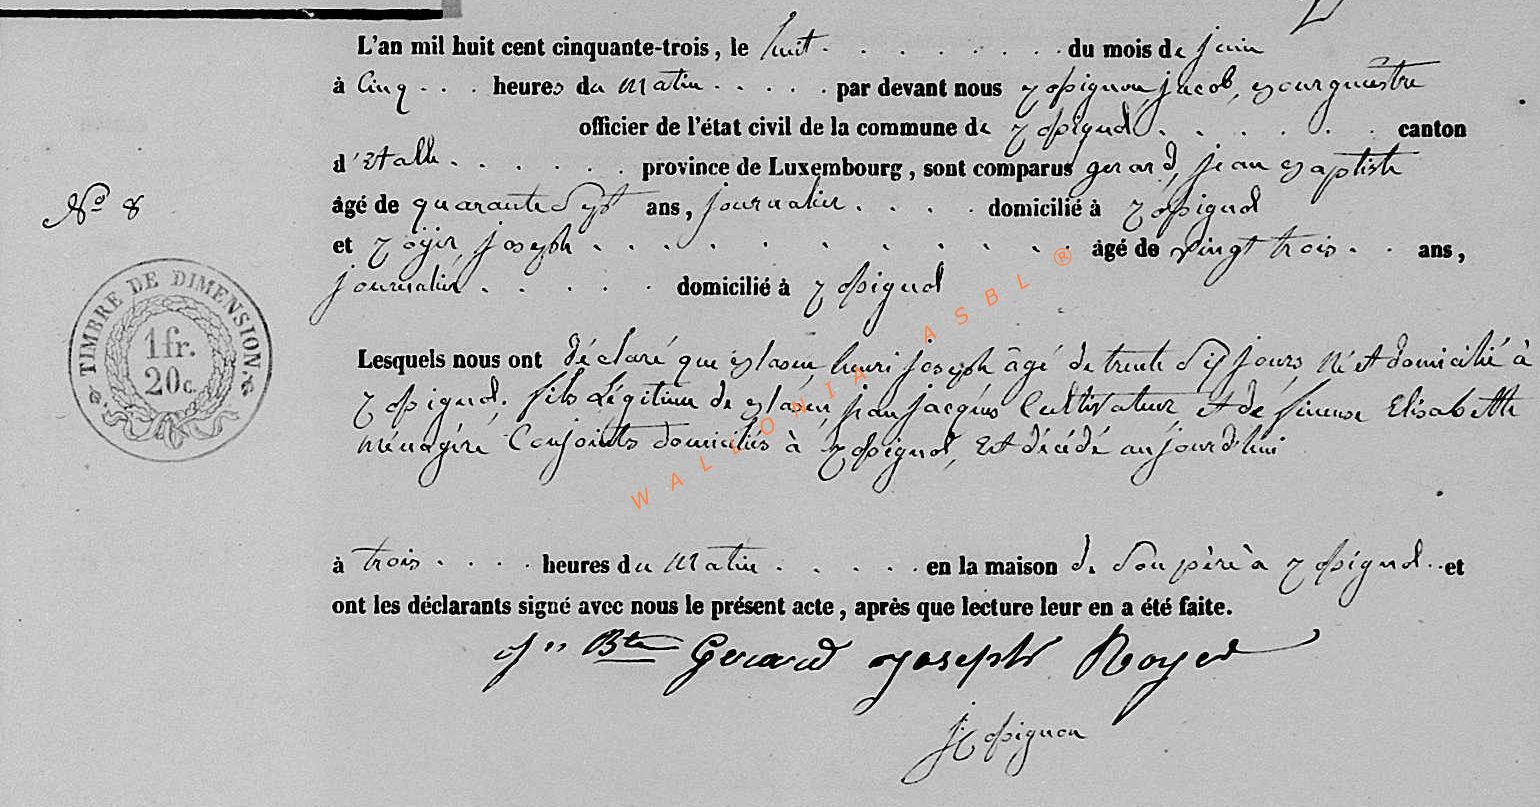 L'an mil huit cent cinquante-trois, le huit . . . . . . . . du mois de juin
à Cinq . . . heures du Matin . . . . . par devant nous Rossignon, Jacob, Bourgmestre
officier de l'état civil de la commune de Rossignol . . . . . . canton
d'Etalle . . . . . . province de Luxembourg, sont comparus Gerard, Jean Baptiste
N° 8
âgé de quarante Sept ans, journalier . . . . domicilié à Rossignol
et Royer, Joseph . . . . . . . . . âgé de vingt trois . . ans,
journalier . . . . . domicilié à Rossignol
TIMBRE DE DIMENSION.
1 fr.
20 c.
Lesquels nous ont déclaré que henri joseph âgé de trente jours, Né et domicilié à
Rossignol, fils Légitime de jean jacques Cultivateur et de Elisabeth
ménagère Conjoints domiciliés à Rossignol, Est décédé aujourd'hui
à trois . . . . heures du Matin . . . . . en la maison de Son père à Rossignol . . et
ont les déclarants signé avec nous le présent acte, après que lecture leur en a été faite.
Jn Bte Gerard Joseph Royer
J Rossignon
WALLONIA ASBL ®